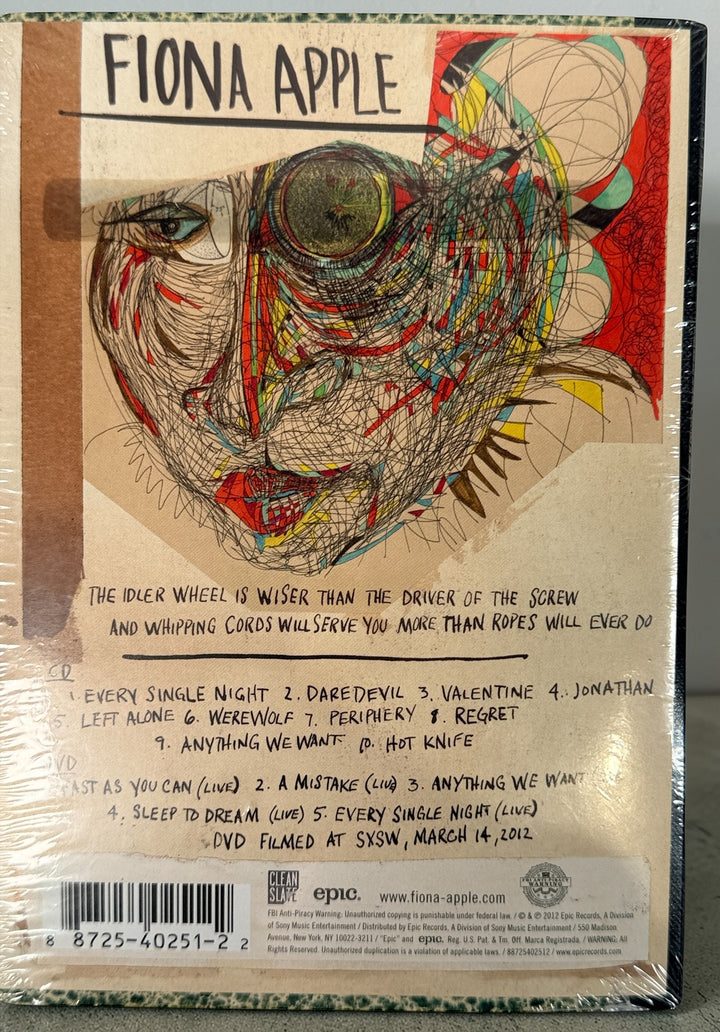 FIONA APPLE
THE IDLER WHEEL IS WISER THAN THE DRIVER OF THE SCREW
AND WHIPPING CORDS WILL SERVE YOU MORE THAN ROPES WILL EVER DO
CD
1. EVERY SINGLE NIGHT 2. DAREDEVIL 3. VALENTINE 4. JONATHAN
5. LEFT ALONE 6. WEREWOLF 7. PERIPHERY 8. REGRET
9. ANYTHING WE WANT 10. HOT KNIFE
DVD
FAST AS YOU CAN (LIVE) 2. A MISTAKE (LIVE) 3. ANYTHING WE WANT
4. SLEEP TO DREAM (LIVE) 5. EVERY SINGLE NIGHT (LIVE)
DVD FILMED AT SXSW, MARCH 14, 2012
CLEAN SLATE epic. www.fiona-apple.com FBI ANTI-PIRACY WARNING
FBI Anti-Piracy Warning: Unauthorized copying is punishable under federal law. / © & ℗ 2012 Epic Records, A Division
of Sony Music Entertainment / Distributed by Epic Records, A Division of Sony Music Entertainment / 550 Madison
Avenue, New York, NY 10022-3211 / "Epic" and epic. Reg. U.S. Pat. & Tm. Off. Marca Registrada. / WARNING: All
Rights Reserved. Unauthorized duplication is a violation of applicable laws. / 88725402512 / www.epicrecords.com
8 8725-40251-2 2